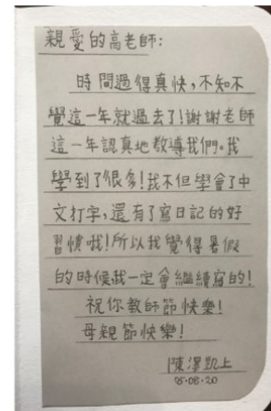 親愛的高老師：
時間過得真快，不知不
覺這一年就過去了！謝謝老師
這一年認真地教導我們。我
學到了很多！我不但學會了中
文打字，還有了寫日記的好
習慣哦！所以我覺得暑假
的時候我一定會繼續寫的！
祝你教師節快樂！
母親節快樂！
陳澤凱上